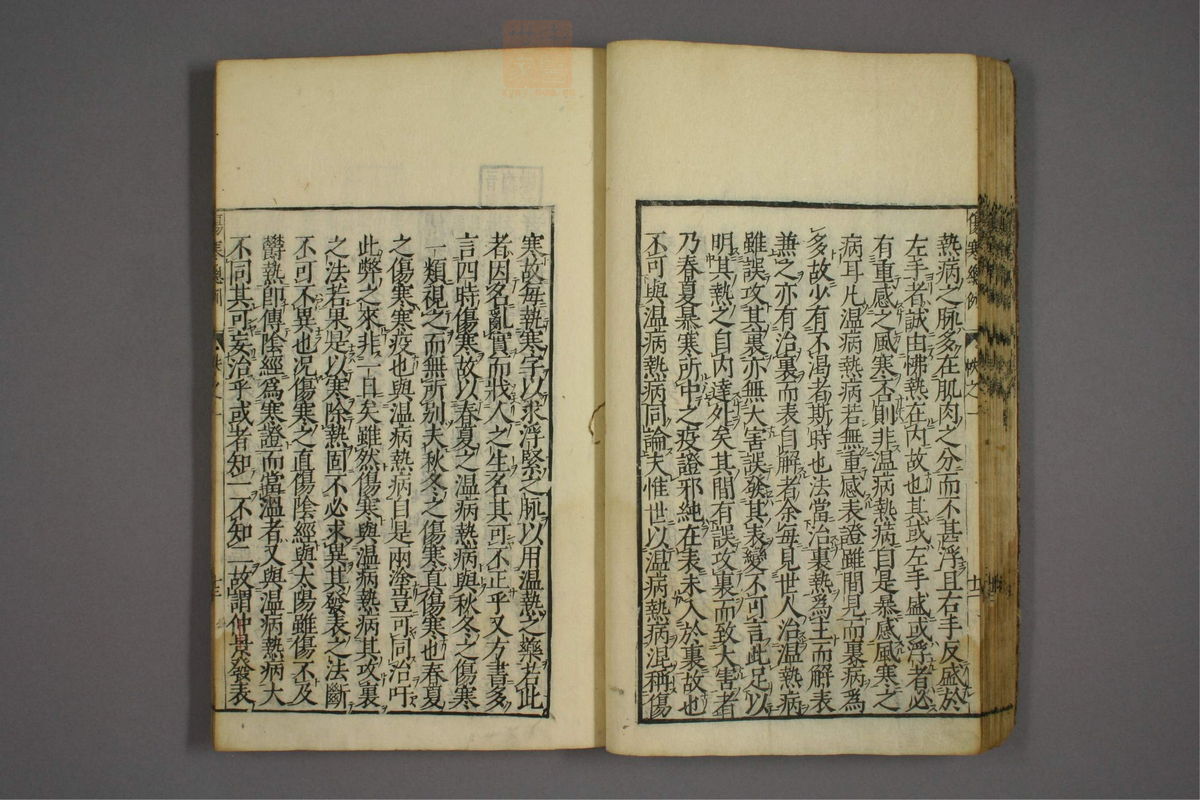 熱病之脉多在肌肉之分而不甚浮且右手反盛於
左手者誠由怫熱在内故也其或左手盛或浮者必
有重感之風寒否則非温病熱病自是暴感風寒之
病耳凡温病熱病若無重感表證雖間見而裏病爲
多故少有不渴者斯時也法當治裏熱爲主而解表
兼之亦有治裏而表自解者余毎見世人治温熱病
雖誤攻其裏亦無大害誤發其表變不可言此足以
明其熱之自内達外矣其間有誤攻裏而致大害者
乃春夏暴寒所中之疫證邪純在表未入於裏故也
不可與温病熱病同論夫惟世以温病熱病混稱傷
傷寒總
之一
十二
寒故毎執寒字以求浮緊之脉以用温熱之藥若此
者因名亂實而戕人之生名其可不正乎又方書多
言四時傷寒故以春夏之温病熱病與秋冬之傷寒
一類視之而無所别夫秋冬之傷寒真傷寒也春夏
之傷寒寒疫也與温病熱病自是兩塗豈可同治吁
此弊之來非一日矣雖然傷寒與温病熱病其攻裏
之法若果是以寒除熱固不必求異其發表之法斷
不可不異也況傷寒之直傷陰經與太陽雖傷不及
欝熱即傳陰經爲寒證而當温者又與温病熱病大
不同其可妄治乎或者知一不知二故謂仲景發表
十三